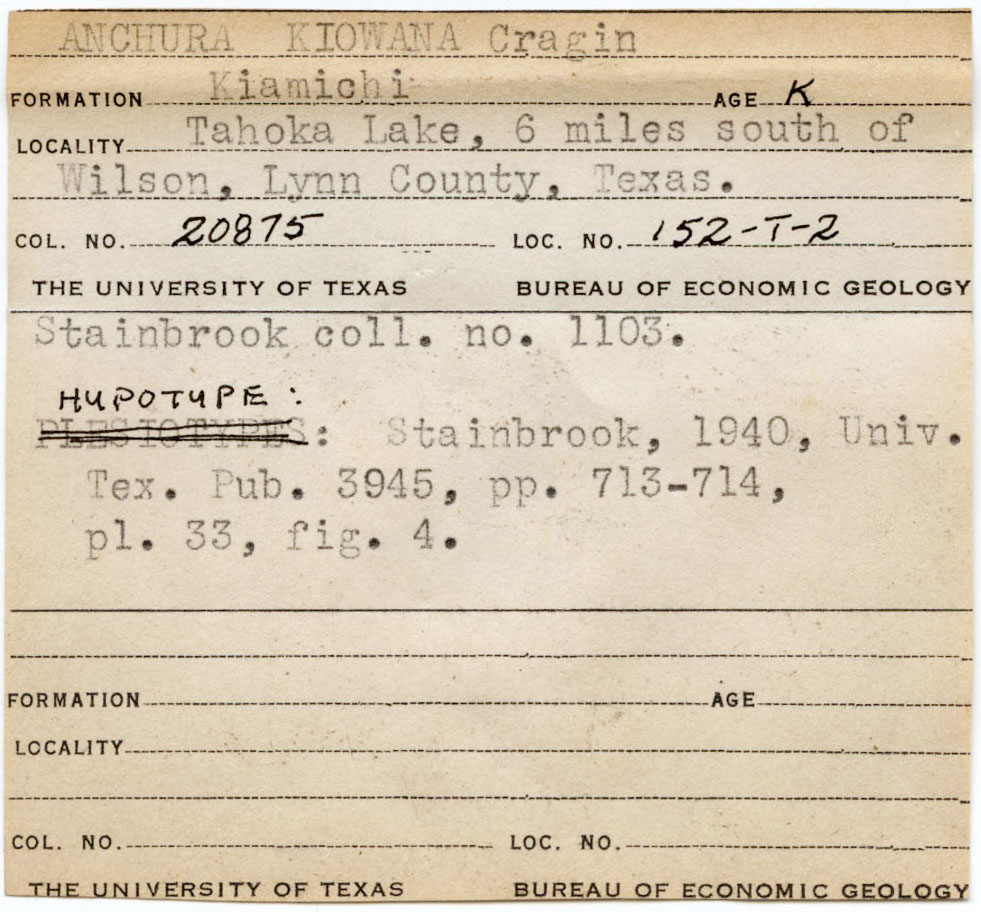 ANCHURA KIOWANA Cragin
FORMATION Kiamichi AGE K
LOCALITY Tahoka Lake, 6 miles south of
Wilson, Lynn County, Texas.
COL. NO. 20875 LOC. NO. 152-T-2
THE UNIVERSITY OF TEXAS BUREAU OF ECONOMIC GEOLOGY
Stainbrook coll. no. 1103.
HYPOTYPE:
PLESIOTYPES: Stainbrook, 1940, Univ.
Tex. Pub. 3945, pp. 713-714,
pl. 33, fig. 4.
FORMATION AGE
LOCALITY
COL. NO. LOC. NO.
THE UNIVERSITY OF TEXAS BUREAU OF ECONOMIC GEOLOGY